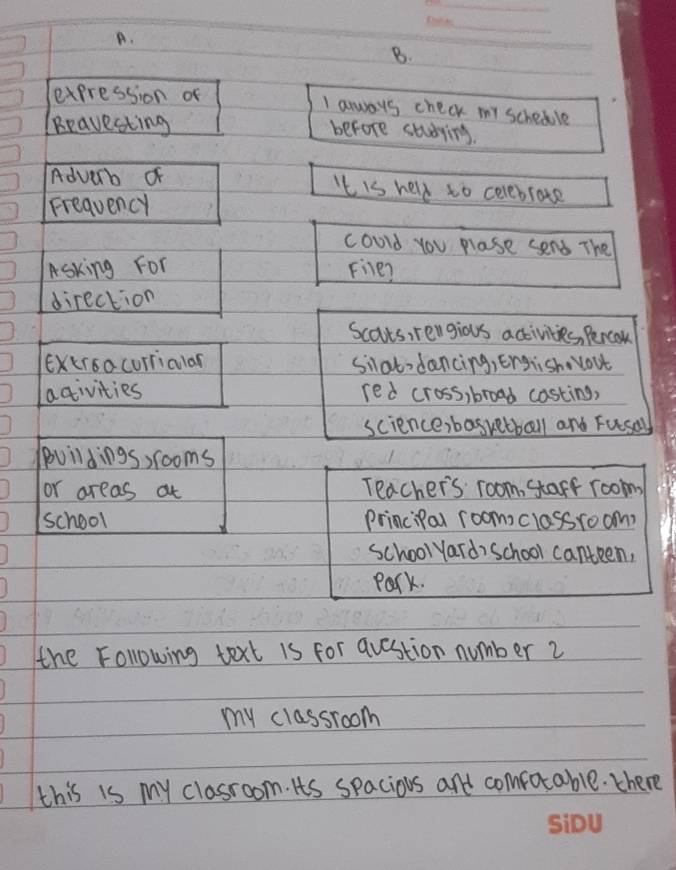 A.
B.
expression of
Reavesting
I always check my schedule
before studying.
Adverb of
Frequency
It is held to celebrate
Could you plase send The
File?
Asking For
direction
Scouts, religious activities, Percak
silat, dancing, English, Yout
red cross, broad casting,
science, basketball and Futsal
Extraacurricular
activities
Buildings, rooms
or areas at
school
Teacher's room, staff room
Principal room, classroom,
school Yard, school canteen,
Park.
the Following text is for question number 2
my classroom
this is my clasroom. Its spacious and comfotable. there
SiDU